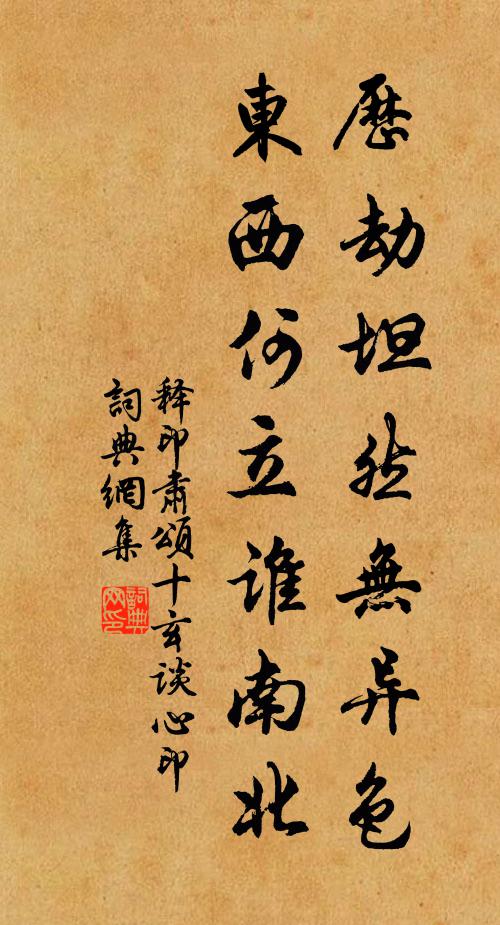 歷劫坦然無异色
東西何立誰南北
释印肅頌十玄談心印
詞典網集
詞典网印